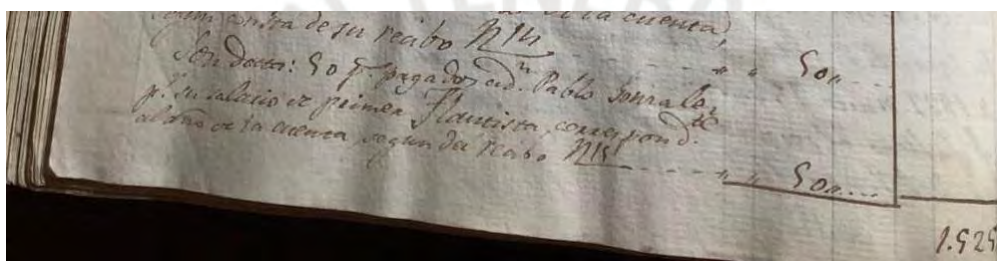 de la cuenta,
segun consta de su recibo N14 " " 50 "
Son data: 50 p.s pagados a d.n Pablo Gonzales,
p.r su salario de primer flautista, correspond.te
al año de la cuenta segun del recibo N15 " " 50 "
1.525